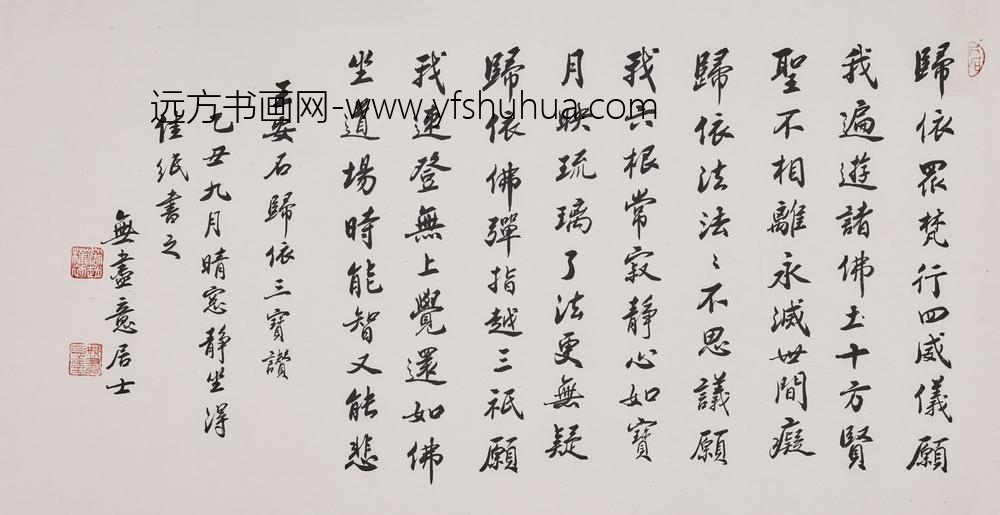 歸依眾梵行四威儀願
我遍遊諸佛土十方賢
聖不相離永滅世間癡
歸依法法〻不思議願
我六根常寂静心如寶
月映琉璃了法更無疑
歸依佛彈指越三祇願
我速登無上覺還如佛
坐道場時能智又能悲
王安石歸依三寶讃
乙丑九月晴窓静坐得
佳纸書之
無盡意居士
远方书画网-www.yfshuhua.com